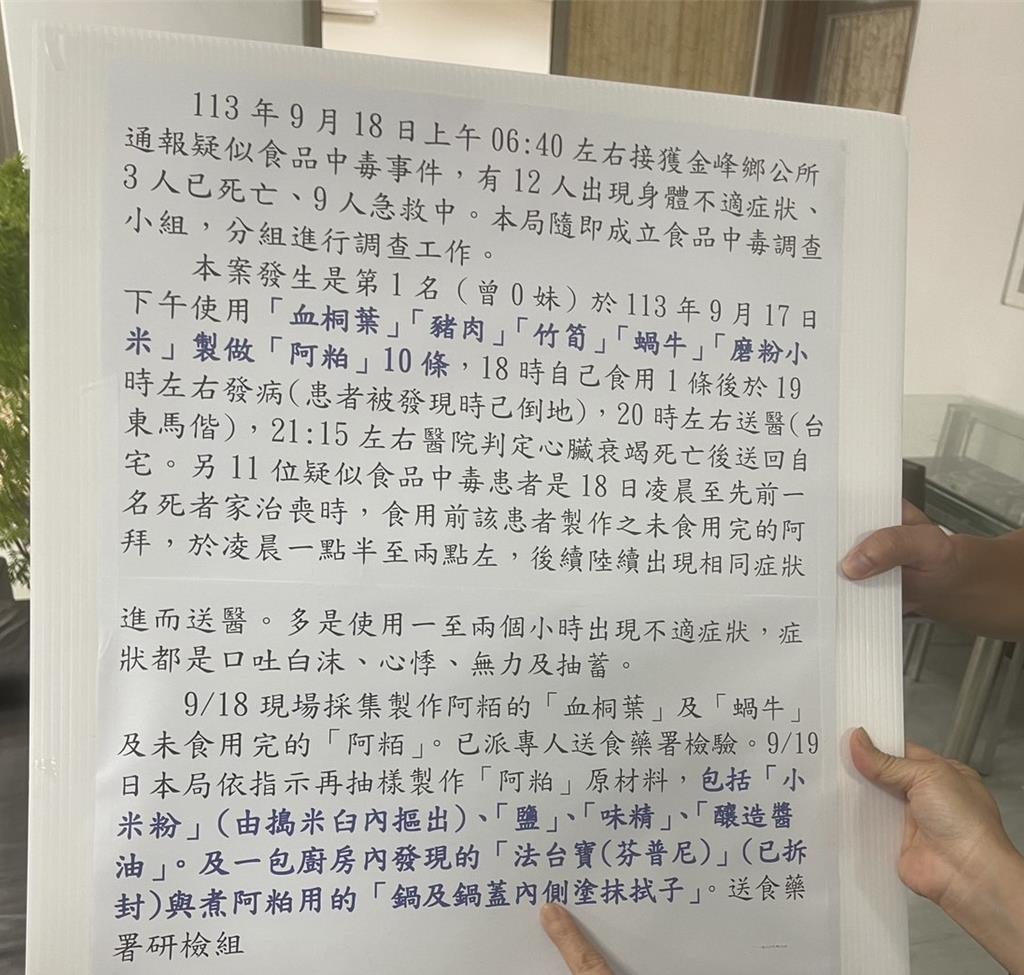 113 年 9 月 18 日上午 06:40 左右接獲金峰鄉公所
通報疑似食品中毒事件，有 12 人出現身體不適症狀、
3 人已死亡、9 人急救中。本局隨即成立食品中毒調查
小組，分組進行調查工作。
本案發生是第 1 名（曾 0 妹）於 113 年 9 月 17 日
下午使用「血桐葉」「豬肉」「竹筍」「蝸牛」「磨粉小
米」製做「阿粨」10 條，18 時自己食用 1 條後於 19
時左右發病(患者被發現時已倒地)，20 時左右送醫(台
東馬偕)，21:15 左右醫院判定心臟衰竭死亡後送回自
宅。另 11 位疑似食品中毒患者是 18 日凌晨至先前一
名死者家治喪時，食用前該患者製作之未食用完的阿
拜，於凌晨一點半至兩點左，後續陸續出現相同症狀
進而送醫。多是使用一至兩個小時出現不適症狀，症
狀都是口吐白沫、心悸、無力及抽蓄。
9/18 現場採集製作阿粨的「血桐葉」及「蝸牛」
及未食用完的「阿粨」。已派專人送食藥署檢驗。9/19
日本局依指示再抽樣製作「阿粨」原材料，包括「小
米粉」(由搗米臼內摳出)、「鹽」、「味精」、「釀造醬
油」。及一包廚房內發現的「法台寶(芬普尼)」(已拆
封)與煮阿粨用的「鍋及鍋蓋內側塗抹拭子」。送食藥
署研檢組